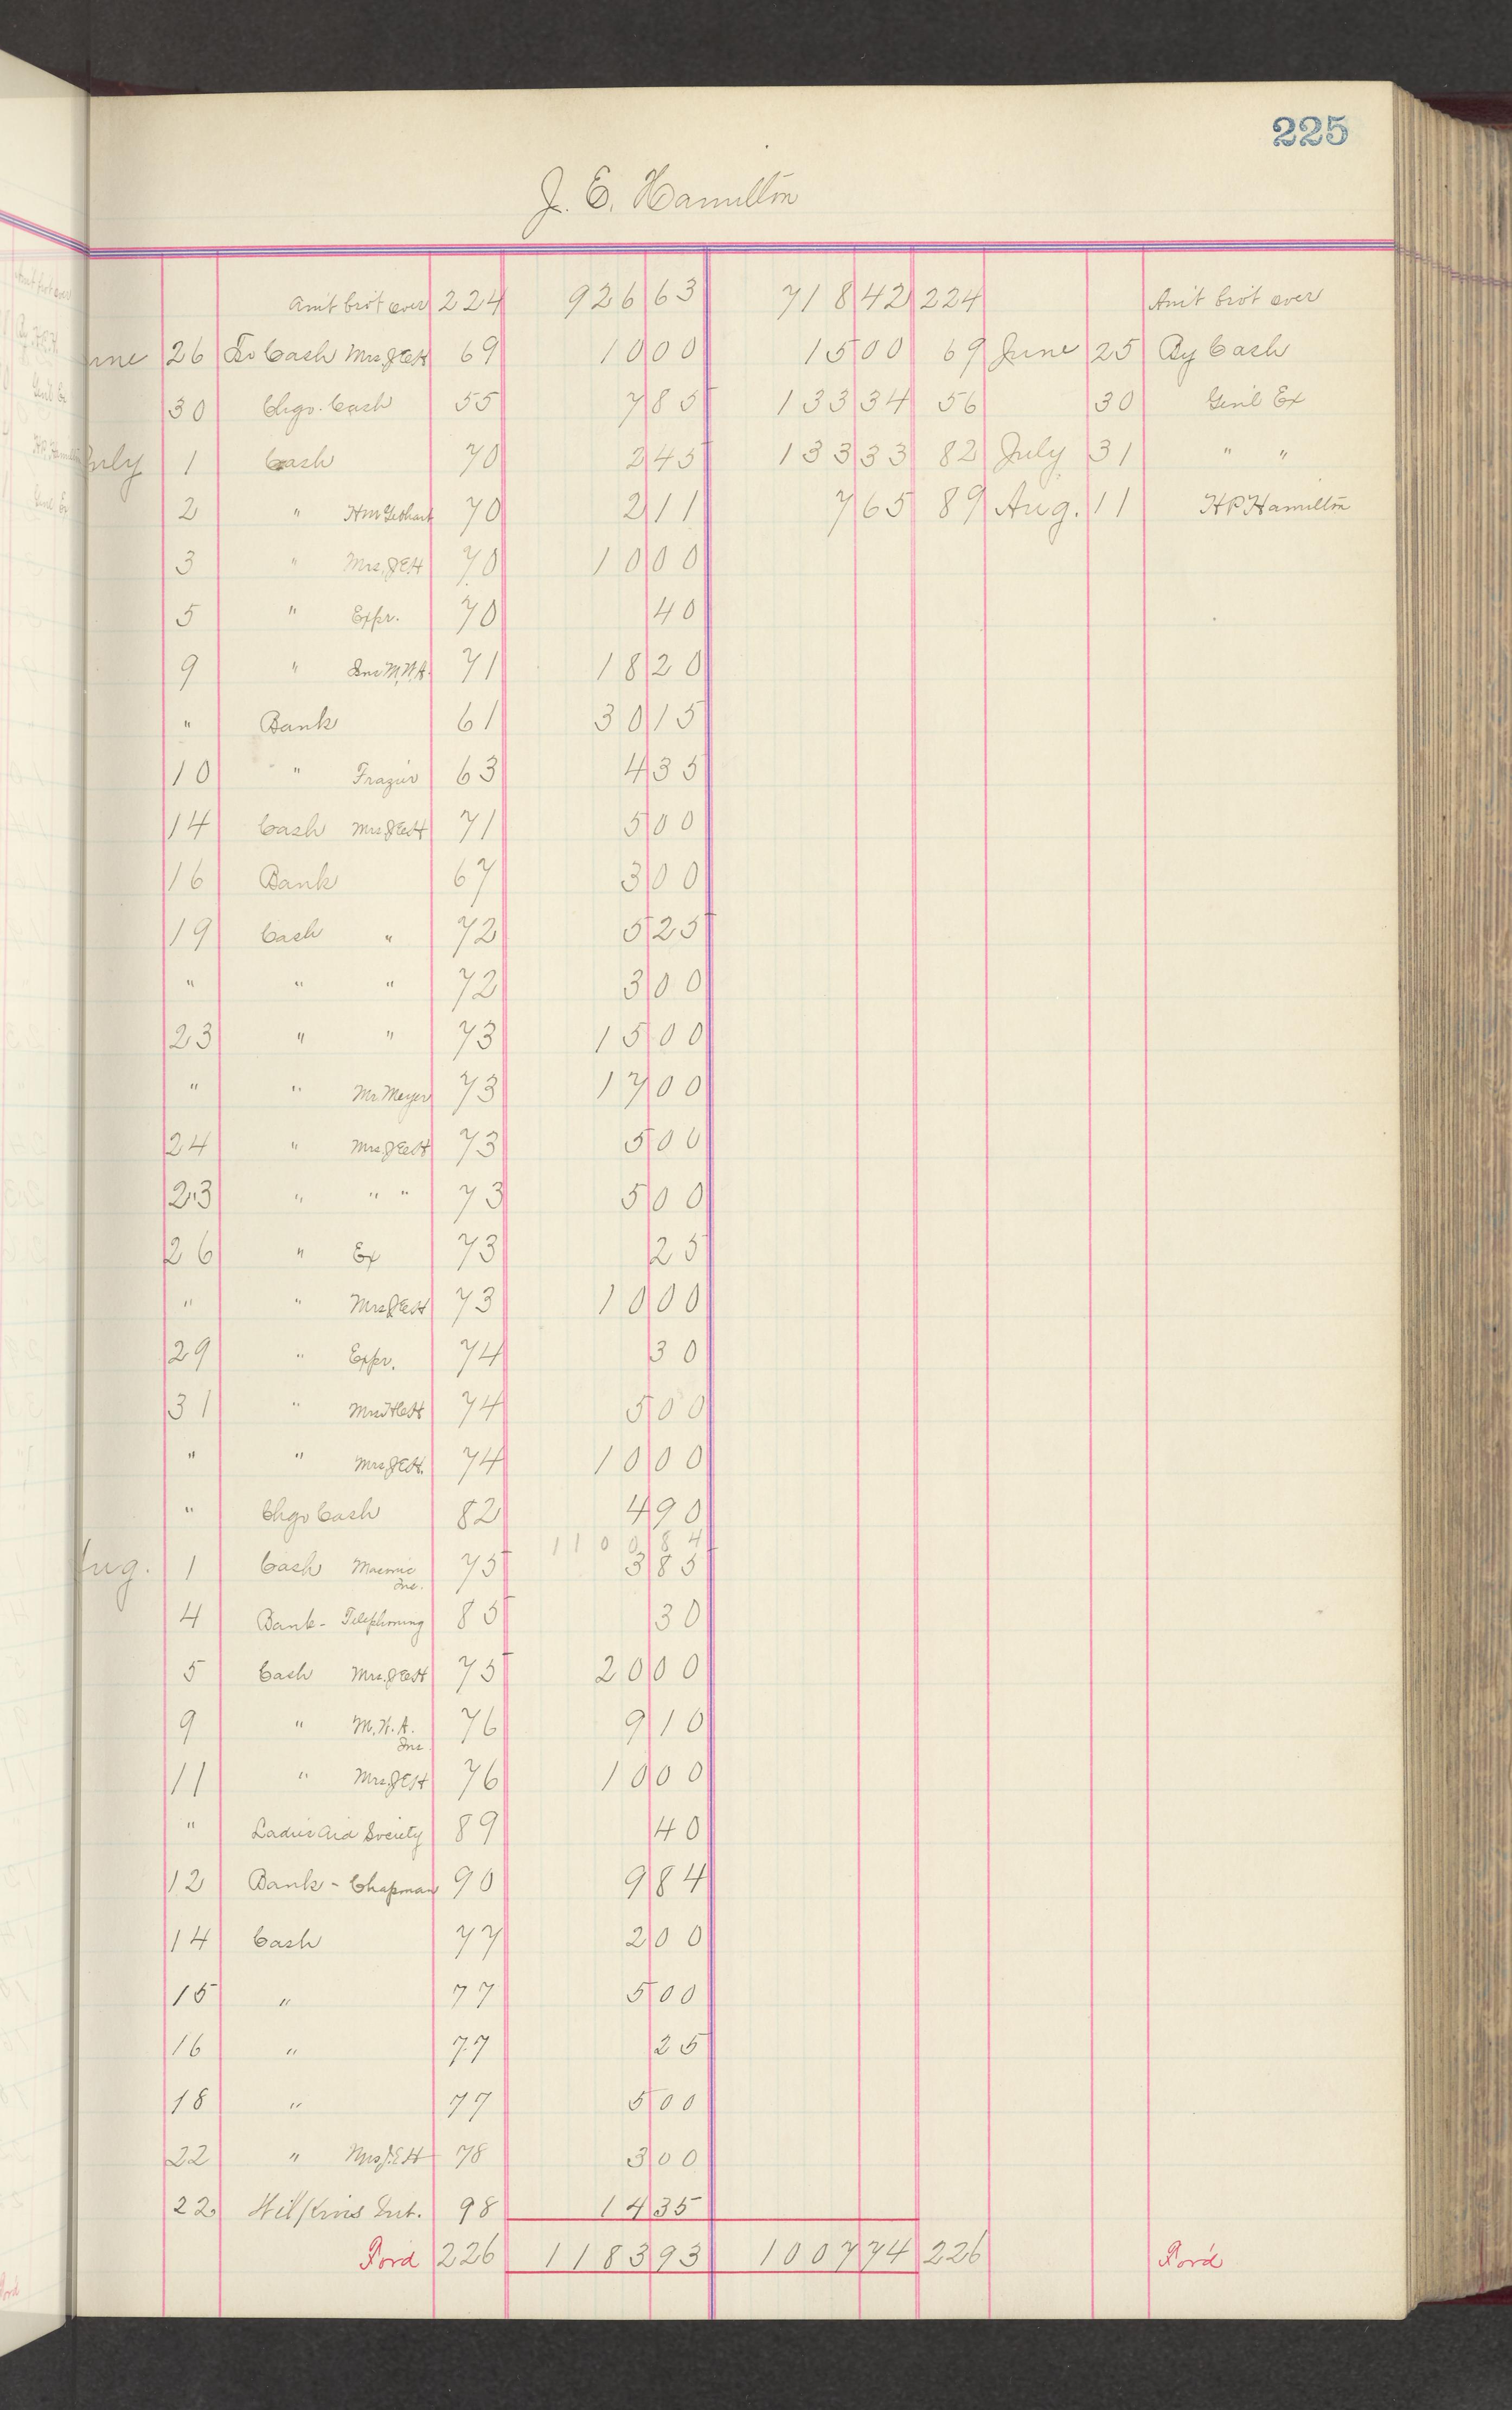 225
J. E. Hamilton
Amt brot over 224 926 63 718 42 224 Amt brot over
June 26 To Cash Mrs. J E H 69 10 00 15 00 69 June 25 By Cash
30 Chgo. Cash 55 7 85 133 34 56 30 Gen'l Ex
July 1 Cash 70 2 45 133 33 82 July 31 " "
2 " H M Gebhart 70 2 11 7 65 89 Aug. 11 H P Hamilton
3 " Mrs. J E H 70 10 00
5 " Expr. 70 40
9 " Ins M.W.A. 71 18 20
" Bank 61 30 15
10 " Frazier 63 4 35
14 Cash Mrs J E H 71 5 00
16 Bank 67 3 00
19 Cash " 72 5 25
" " " 72 3 00
23 " " 73 15 00
" " Mr. Meyer 73 17 00
24 " Mrs. J E H 73 5 00
23 " " " 73 5 00
26 " Ex 73 25
" " Mrs J E H 73 10 00
29 " Expr. 74 30
31 " 74 5 00
" " Mrs J E H. 74 10 00
" Chgo Cash 82 4 90
1100 84
Aug. 1 Cash 75 3 85
Ins.
4 Bank - Telephoning 85 30
5 Cash Mrs. J E H 75 20 00
9 " M.W.A. 76 9 10
Ins.
11 " Mrs. J E H 76 10 00
" Ladies Aid Society 89 40
12 Bank - Chapman 90 9 84
14 Cash 77 2 00
15 " 77 5 00
16 " 77 25
18 " 77 5 00
22 " Mrs J. E H 78 3 00
22 Int. 98 14 35
Ford 226 1183 93 1007 74 226 For'd